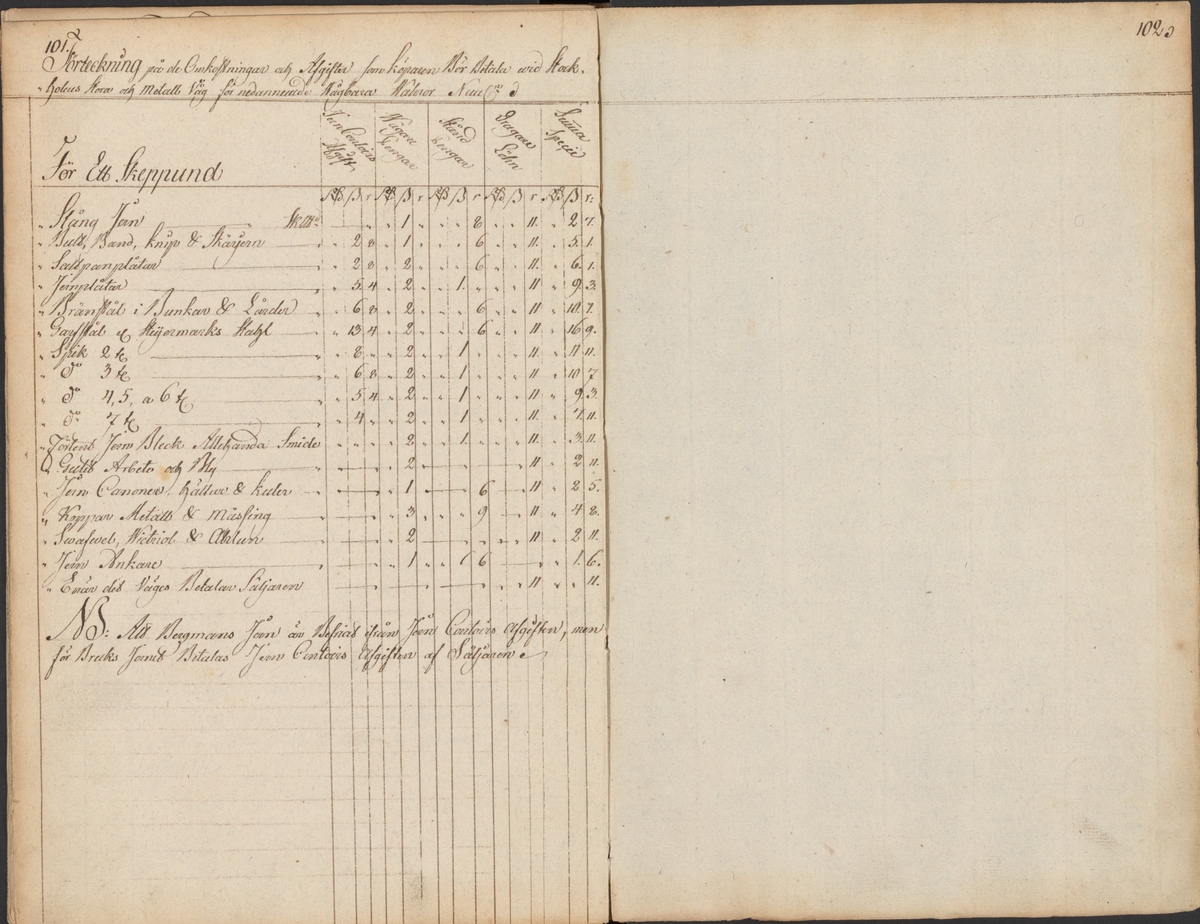 101.
102
Förteckning på de Omkostningar och Afgifter som köparen Bör Betala wid Stock-
holms Stora och Metalls Våg för nedannemde Wågbara Waaror
För Ett Skeppund
Jern Contoirs Afgift
Wågare Pengar
Stånd Pengar
Dragare Löhn
Summa Specie
Rd ß r Rd ß r Rd ß r Rd ß r Rd ß r:
Stång Jern 1 8 11. 2 7.
Bult, Band, knip & Skärjern 2 8 1 6 11. 5. 1.
Saltpanplåtar 2 8 2 6 11. 6. 1.
Jernplåtar 5 4 2 1. 11 9. 3.
Bränstål i Bunkar & Lårder 6 8 2 6 11 10. 7.
Garfstål & Steyermarks Stahl 13 4 2 6 11 16 9.
Spik 2 ℔ 8 2 1 11. 11 11.
do 3 ℔ 6 8 2 1 11. 10 7
do 4, 5, a 6 ℔ 5 4 2 1 11. 9. 3.
do 7 ℔ 4 2 1 11. 7. 11.
Förtent Jern Bleck Allehanda Smide 2 1. 11. 3. 11.
Gutit Arbete och Bly 2 11 2 11.
Jern Canoner Hällar & kulor 1 6 11 2 5.
Koppar Metall & Mässing 3 9 11 4 8.
Swafwel, Wictriol & Allun 2 11 2 11.
Jern Ankare 1 6 1. 6.
Enär det Wäges Betalar Säljaren 11 11.
NB: Alt Bergmans Jern är Befriat ifrån Jern Contoirs Afgiften, men
för Bruks Jernet Betalas Jern Contoirs Afgiften af Säljaren